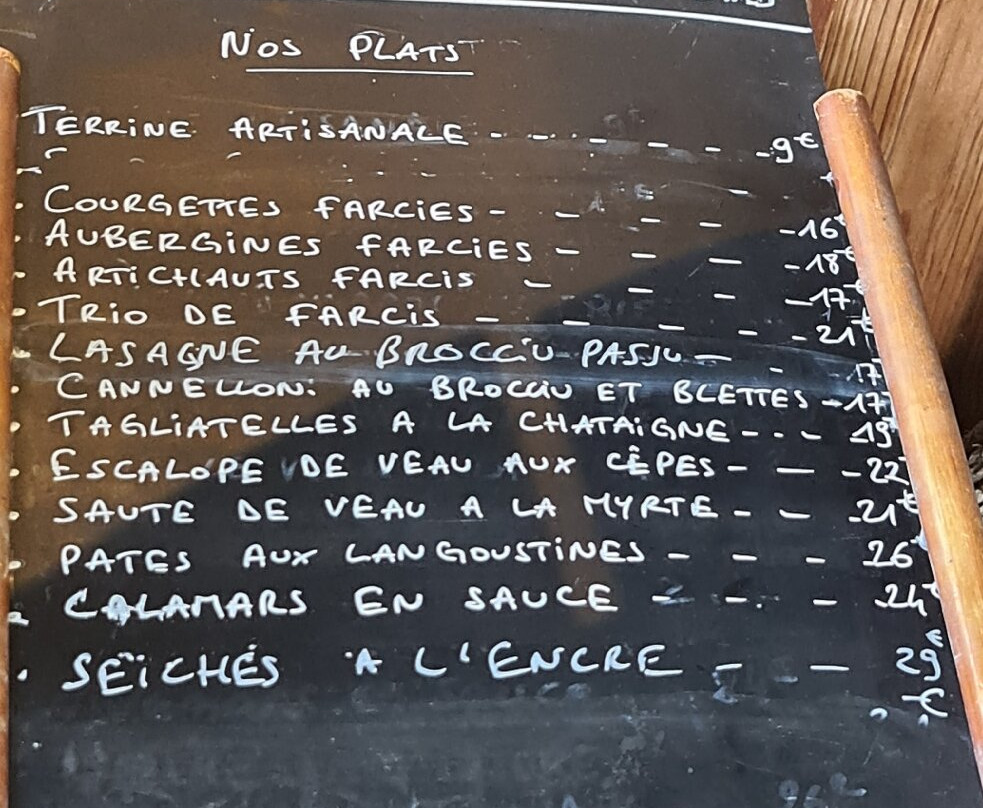 NOS PLATS
TERRINE ARTISANALE - - - - - - 9€
• COURGETTES FARCIES - - - - - 16€
• AUBERGINES FARCIES - - - - 18€
• ARTICHAUTS FARCIS - - - - 17€
• TRIO DE FARCIS - - - - - 21€
• LASAGNE AU BROCCIU PASSU - - 17
• CANNELLONI AU BROCCIU ET BLETTES - 17
• TAGLIATELLES A LA CHATAIGNE - - - 19
• ESCALOPE DE VEAU AUX CÊPES - - - 22
• SAUTE DE VEAU A LA MYRTE - - - 21€
• PATES AUX LANGOUSTINES - - - 26
• CALAMARS EN SAUCE - - - 24€
• SEICHES A L'ENCRE - - 29€